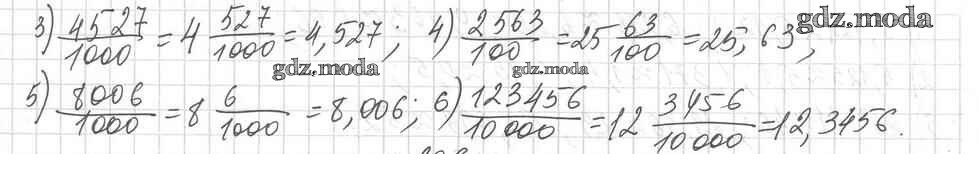 3) 4527/1000 = 4 527/1000 = 4,527; 4) 2563/100 = 25 63/100 = 25,63;
gdz.moda
gdz.moda
gdz.moda
5) 8006/1000 = 8 6/1000 = 8,006; 6) 123456/10000 = 12 3456/10000 = 12,3456.